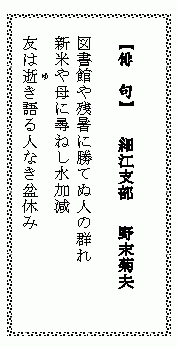 【俳 句】 湘江支部 野末菊夫
図書館や残暑に勝てぬ人の群れ
新米や母に尋ねし水加減
友は逝き語る人なき盆休み
ゆ